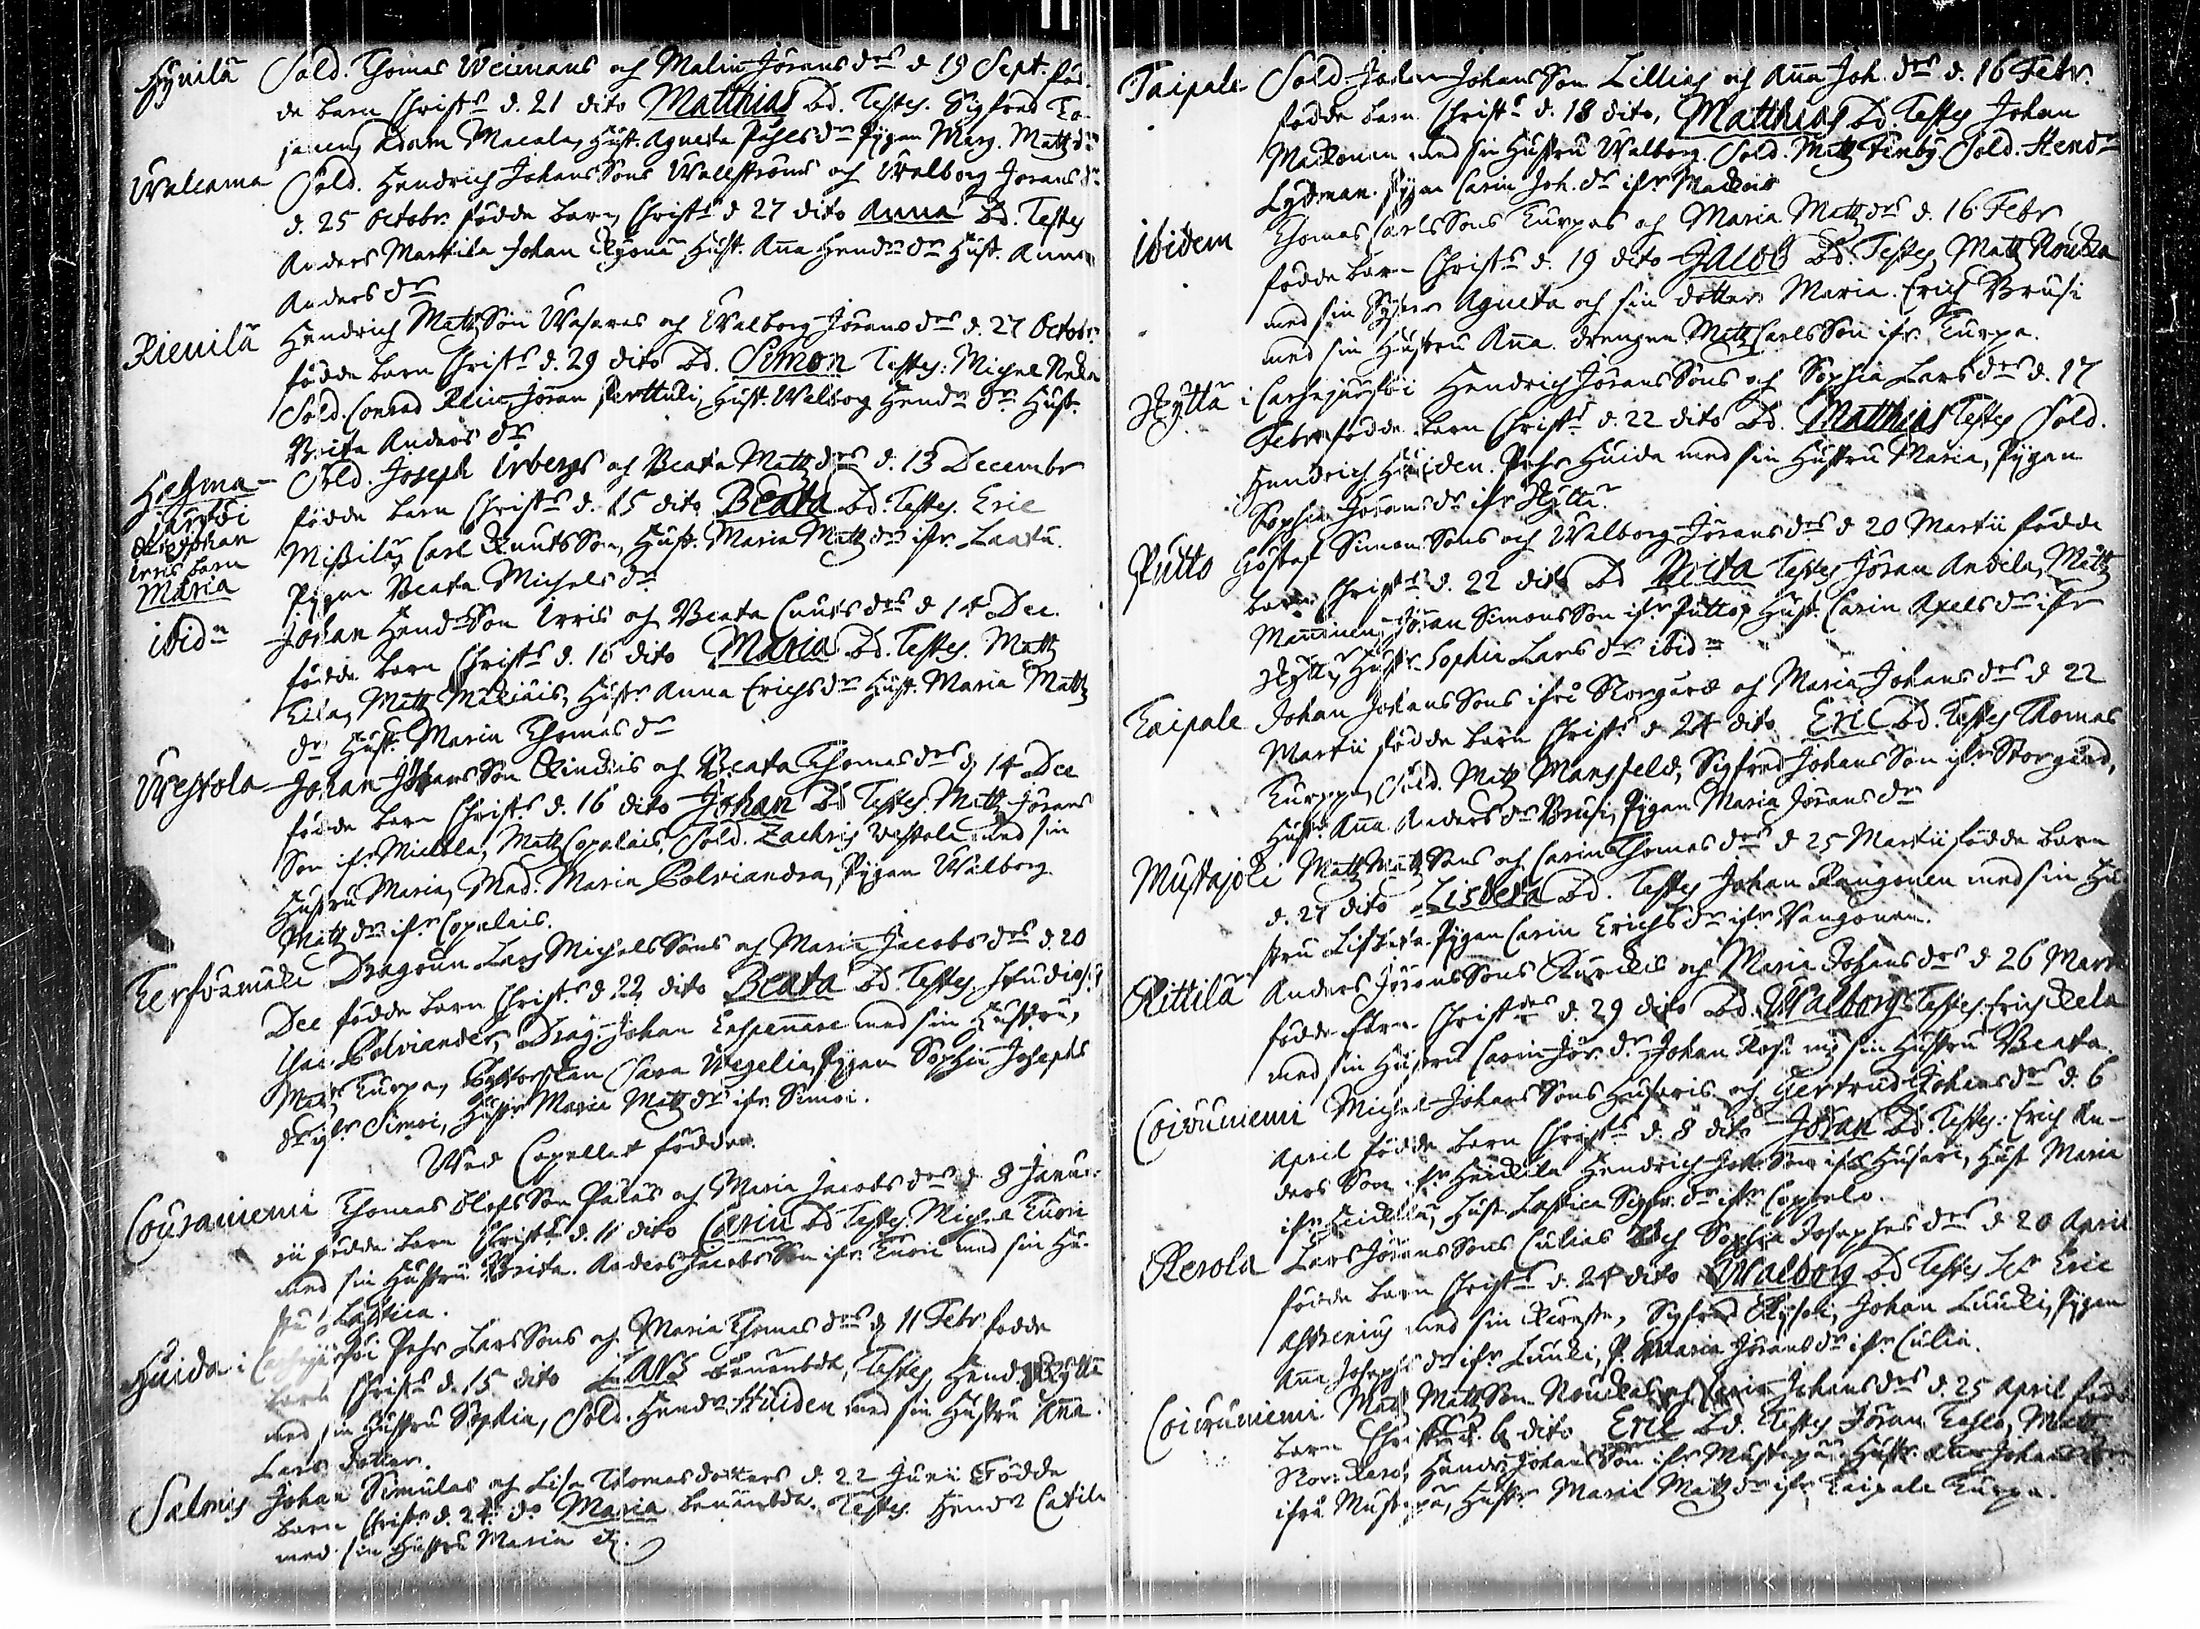 Hynilä Sold. Thomas Weimans och Malin Jörans drs d 19 Sept. föd
de barn Christs d. 21 dito Matthias bd. Testes. Sigfred
Adam Macala, Hust. Agneta Påhls dr Pigan Marg. Matts dr
Walcama Sold. Hendrich Johans Sons Wallströms och Walborg Jörans drs
d. 25 Octobr. födde barn, Christs d 27 dito Anna bd. Testes
Anders Markila Johan Hust. Aña Hendrs dr Hust. Anna
Anders dr
Rienilä Hendrich Matts Son Wasaras och Walborg Jörans drs d. 27 Octobr.
födde barn Christs d. 29 dito bd. Simon Testes: Michel
Sold. Conrad Klin Jöran Perttuli, Hust. Walborg Hendrs dr Hust.
Brita Anders dr
Hagma- Sold. Joseph Orbergs och Beata Matts drs d. 13 Decembr
järfwi födde barn Christs d. 15 dito Beata bd. Testes. Eric
Johan Mißilä, Carl Knuts Son, Hust. Maria Matts dr ifr. Laatu.
Orris barn
Maria Pigan Beata Michels dr
ibidm Johan Hendrs Son Orris och Beata Cnuts drs d 14 Dec.
födde barn Christs d. 16 dito Maria bd. Testes. Matts
Matts Hustr Anna Erichs dr Hust. Maria Matts
dr Hust. Maria Thomas dr
Westola Johan Johans Son och Beata Thomas drs d 14 Dec
födde barn Christs d. 16 dito Johan bd Testes. Matts Jörans
Son ifr Mickla, Matts Copalais, Sold. Zachris Westola med sin
Hustru Maria, Mad. Maria Polviandra, Pigan Walborg
Matts dr ifr Copalais.
Dragoun Lars Michels Sons och Maria Jacobs drs d. 20
Dec födde barn Christs d 22 dito Beata bd. Testes. Studios:
Polviander, Drag. Johan med sin Hustru,
Matts Kurpa, Sara Wegelia, Pigan Sophia Josephs
dr ifr Simoi, Hustr Maria Matts dr ifr Simoi.
Wed Capellet födde.
Couraniemi Thomas Olofs Son och Maria Jacobs drs d. 8 Janua-
rii födde barn Christs d. 11 dito Carin bd Testes. Michel Kuori
med sin Hustru Brita. Anders Jacobs Son ifr. Kuori med sin Hu-
stru Castica.
Huida i Pehr Lars Sons och Maria Thomas drs d 11 Febr. födde
barn Christs d. 15 dito Lars benämbdt, Testes, Hend. Rÿttä
med sin Hustru Sophia, Sold. Hendr Huiden med sin Hustru Aña
Lars dotter.
Salmis Johan Simulas och Lisa Thomas dotters d. 22 Junii Födde
barn Christs d. 24 do Maria benämbdt. Testes. Hendr Catila
med sin Hustru Maria etc.
Taipale Sold Johan Johans Son Lillias och Aña Joh. drs d. 16 Febr.
födde barn Christs d. 18 dito, Matthias bd. Testes Johan
Mackonen med sin Hustru Walborg. Sold. Matts Finby Sold. Hendr
Lydman. Pigan Carin Joh. dr ifr Mackois
Ibidem Thomas Carls Sons Kurpas och Maria Matts drs d. 16 Febr
födde barn Christs d. 19 dito Jacob bd. Testes, Matts Nouka
med sin Syster Agneta och sin dotter Maria. Erich Brusi
med sin Hustru Aña. drengen Matts Carls Son ifr. Kurpa.
Rÿttä i Hendrich Jörans Sons och Sophia Lars drs d. 17
Febr födde barn Christs d. 22 dito bd. Matthias Testes Sold.
Hendrich Huiden. Pehr Huida med sin Hustru Maria, Pigan
Sophia Jörans dr ifr Rÿttä.
Putto Göstaf Simons Sons och Walborg Jörans drs d 20 Martii födde
barn Christs d. 22 dito bd Brita Testes Jöran Matts
Manninen, Jöran Simons Son ifr Putto, Hust. Carin Axels dr ifr
Rÿttä, Hustr Sophia Lars dr ibidm
Taipale Johan Johans Sons ifrå Storgård och Maria Johans drs d 22
Martii födde barn Christs d 24 dito Eric bd. Testes Thomas
Kurppa, Sold. Matts Mansfeld, Sigfred Johans Son ifr Storgård,
Hustr. Aña Anders dr Brusi, Pigan Maria Jörans dr
Mustajoki Matts Matts Sons och Carin Thomas drs d 25 Martii födde barn
d. 27 dito Lisbeta bd. Testes Johan Rangonen med sin Hu
stru Lisbeta. Pigan Carin Erichs dr ifr Rangonen.
Kittilä Anders Jörans Sons Kurckis och Maria Johans drs d 26 Martii
födde barn Christnades d. 29 dito bd. Walborg Testes Erich Kela
med sin Hustru Carin Jör. dr Johan Rosi med sin Hustru Beata.
Coivuniemi Michel Johans Sons Husaris och Gertrud Johans drs d. 6
April födde barn Christs d. 8 dito Jöran bd. Testes: Erich An-
ders Son ifr Heickila Hendrich Joh. Son ifr Husari, Hust Maria
ifr Heickilä, Hust Castica Sigfr. dr ifr Coppelo.
Kerola Lars Jörans Sons Culias och Sophia Josephs drs d 20 April
födde barn Christs d. 24 dito Walborg bd Testes Eric
Asthenius med sin Käresta, Sigfred Johan Luuki, Pigan
Aña Josephs dr ifr Luuki, P. Maria Jörans dr ifr Culia.
Coivuniemi Matts Matts Son Nouckas och Carin Johans drs d. 25 April född
barn Christs d. dito Eric bd. Testes Jöran Matts
Hendr Johans Son ifr Mustapää Hustr Aña Johans dr
ifrå Mustapää, Hustr Maria Matts dr ifr Taipale Kurpa.